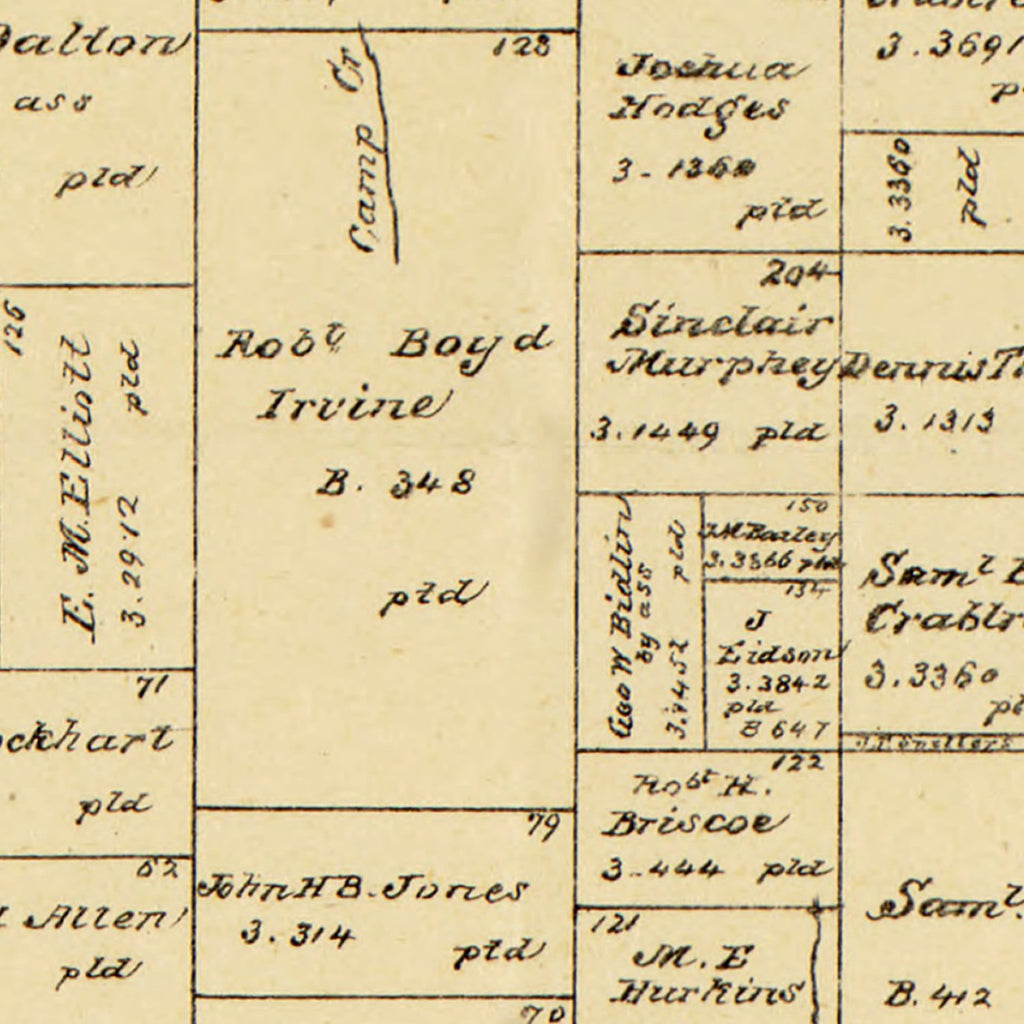 ass
pld
126
E. M. Elliott
3.2912 pld
71
pld
62
Allen
pld
128
Camp Cr
Robt Boyd
Irvine
B. 348
ptd
79
John H B. Jones
3. 314
ptd
70
Joshua
Hodges
3-1360
ptd
204
Sinclair
Murphey
3.1449 pld
by ass
pld
150
134
J
Eidson
3.3842
pld
B 647
122
Robt H.
Briscoe
3-444 pld
121
M. E
Hurkins
3.3691
3.3360
pld
Dennis
3. 1313
Saml
3.3360
Saml.
B. 412